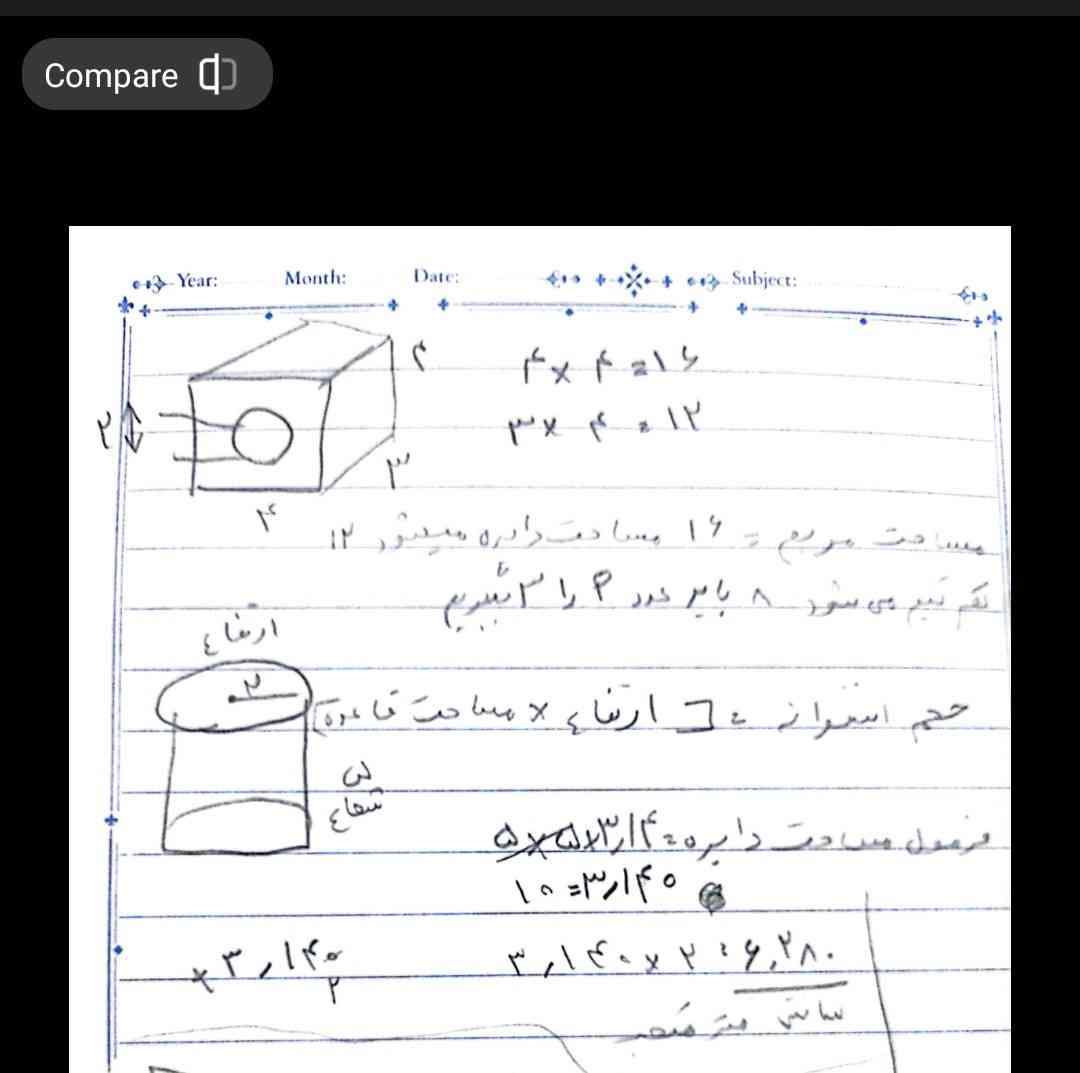 Compare
Year: Month: Date: Subject:
۴
۴ × ۴ = ۱۶
۲
۳ × ۴ = ۱۲
۳
۴
مساحت مربع = ۱۶ مساحت دایره میشود ۱۲
می شود ۸ باید عدد P را ۳ بگیریم
ارتفاع
۲
حجم استوانه = [ارتفاع × مساحت قاعده]
شعاع
فرمول مساحت دایره = ۵×۵×۳٫۱۴
۱۰ = ۳٫۱۴۰
× ۳٫۱۴۰
۲
۳٫۱۴۰ × ۲ = ۶٫۲۸۰
سانتی متر مکعب